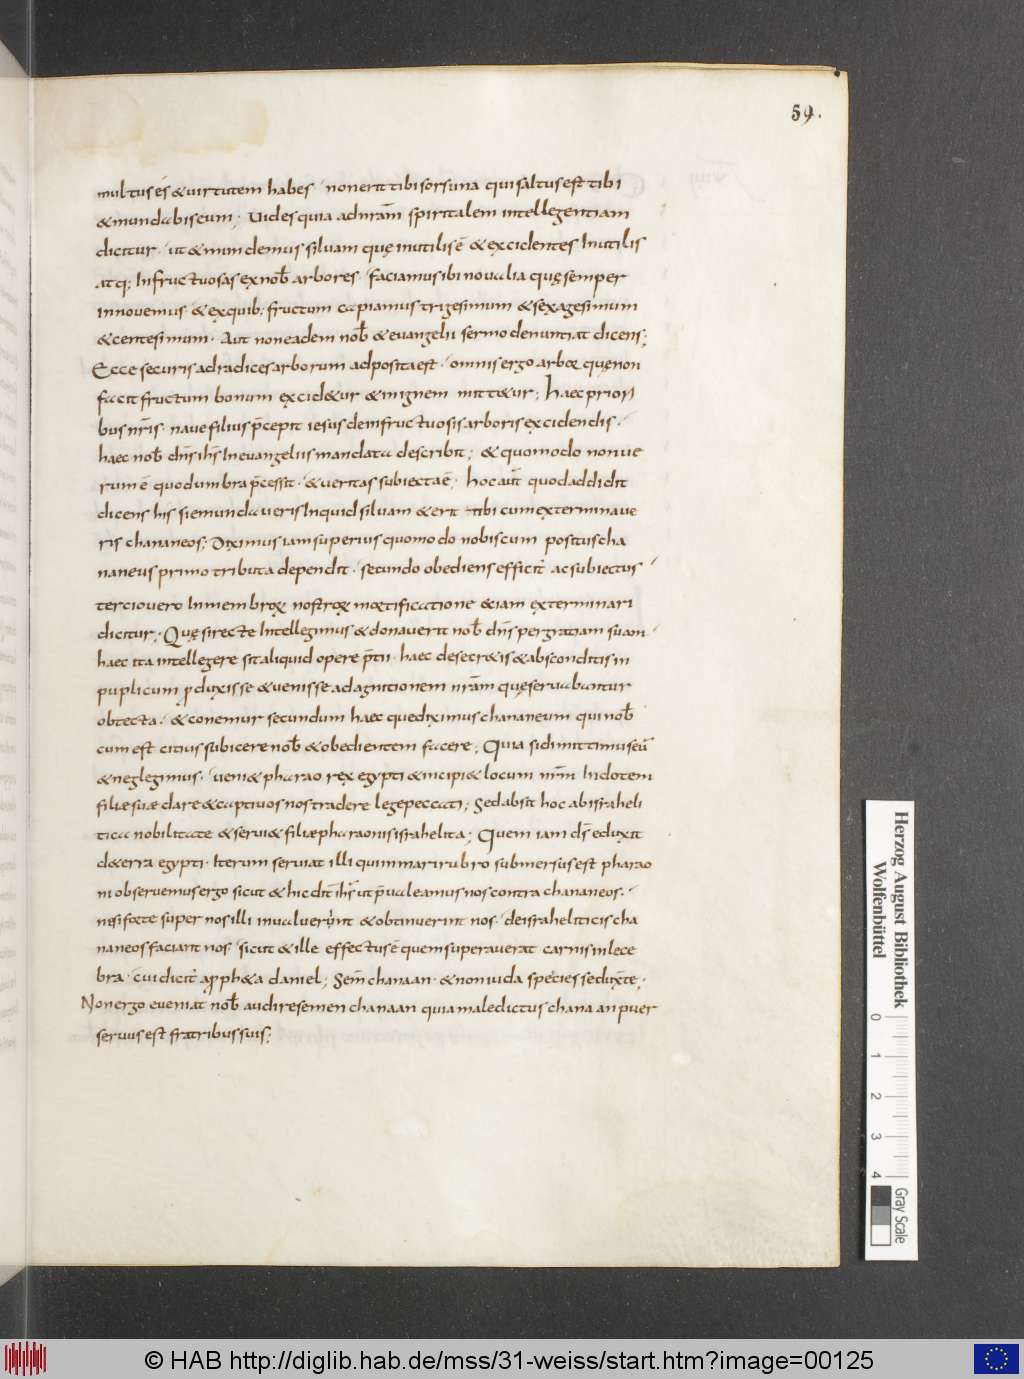 59.
multus es̄ & uirtutem habes · non erit tibi sors una qui saltus est tibi
& mundabis eum · Uides quia ad nr̄am spiritalem intellegentiam
dicitur · ut & mundemus siluam quę inutilis ē & excidentes Inutilis
atq; Infructuosas ex nob̄ arbores · faciamus ibi noualia quę semper
innouemus & ex quib; fructum capiamus trigesimum & sexagesimum
& centesimum · Aut non eadem nob̄ & euangelii sermo denuntiat dicens;
Ecce securis ad radices arborum adposita est · omnis ergo arbor quę non
facit fructum bonum excid&ur & in ignem mitt&ur; haec priori
bus nr̄is · naue filius p̄cepit iesus de infructuosis arboris excidendis ·
haec nob̄ dn̄s ih̄s In euangeliis mandata describit; & quomodo non ue
rum ē quod umbra p̄cessit · & ueritas subiecta ē · hoc aūt quod addidit
dicens his si emundaueris Inquid siluam & erit tibi cum exterminaue
ris chananeos; Diximus iam superius quomodo nobiscum positus cha
naneus primo tributa dependit · secundo obediens efficit̄ ac subiectus
tercio uero In membroꝝ nostroꝝ mortificatione &iam exterminari
dicitur; Quę si recte Intellegimus & donauerit nob̄ dn̄s per gratiam suam ·
haec ita intellegere sit aliquid opere p̄tii · haec de secr&is & absconditis in
puplicum ꝓduxisse & uenisse ad agnitionem nr̄am quę seruabantur
obtecta · & conemur secundum haec que diximus chananeum qui nob̄
cum est citius subicere nob̄ & obedientem facere; Quia si dimittimus eū
& neglegimus · ueni& pharao rex egypti & incipi& locum nr̄m In dotem
filiæ suæ dare & captiuos nos tradere lege peccati; Sed absit hoc ab israheli
tica nobilitate & serui& filiæ pharaonis israhelita; Quem iam ds̄ eduxit
d& erra egypti · Iterum seruiat illi qui in mari rubro submersus est pharao
ni obseruemus ergo sicut & hic dīt ih̄s ut p̄ualeamus nos contra chananeos ·
ne si forte super nos illi inualuerint & obtinuerint nos · de israheliticis cha
naneos faciant nos · sicut & ille effectus ē quem superauerat carnis inlece
bra · cui dicit̄ a ꝓph&a daniel; Sem̄ chanaan · & non iuda species seduxit te ·
Non ergo eueniat nob̄ audire semen chanaan quia maledictus chanaan puer
seruus est fratribus suis;
Herzog August Bibliothek
Wolfenbüttel
0 1 2 3 4
Gray Scale
© HAB http://diglib.hab.de/mss/31-weiss/start.htm?image=00125